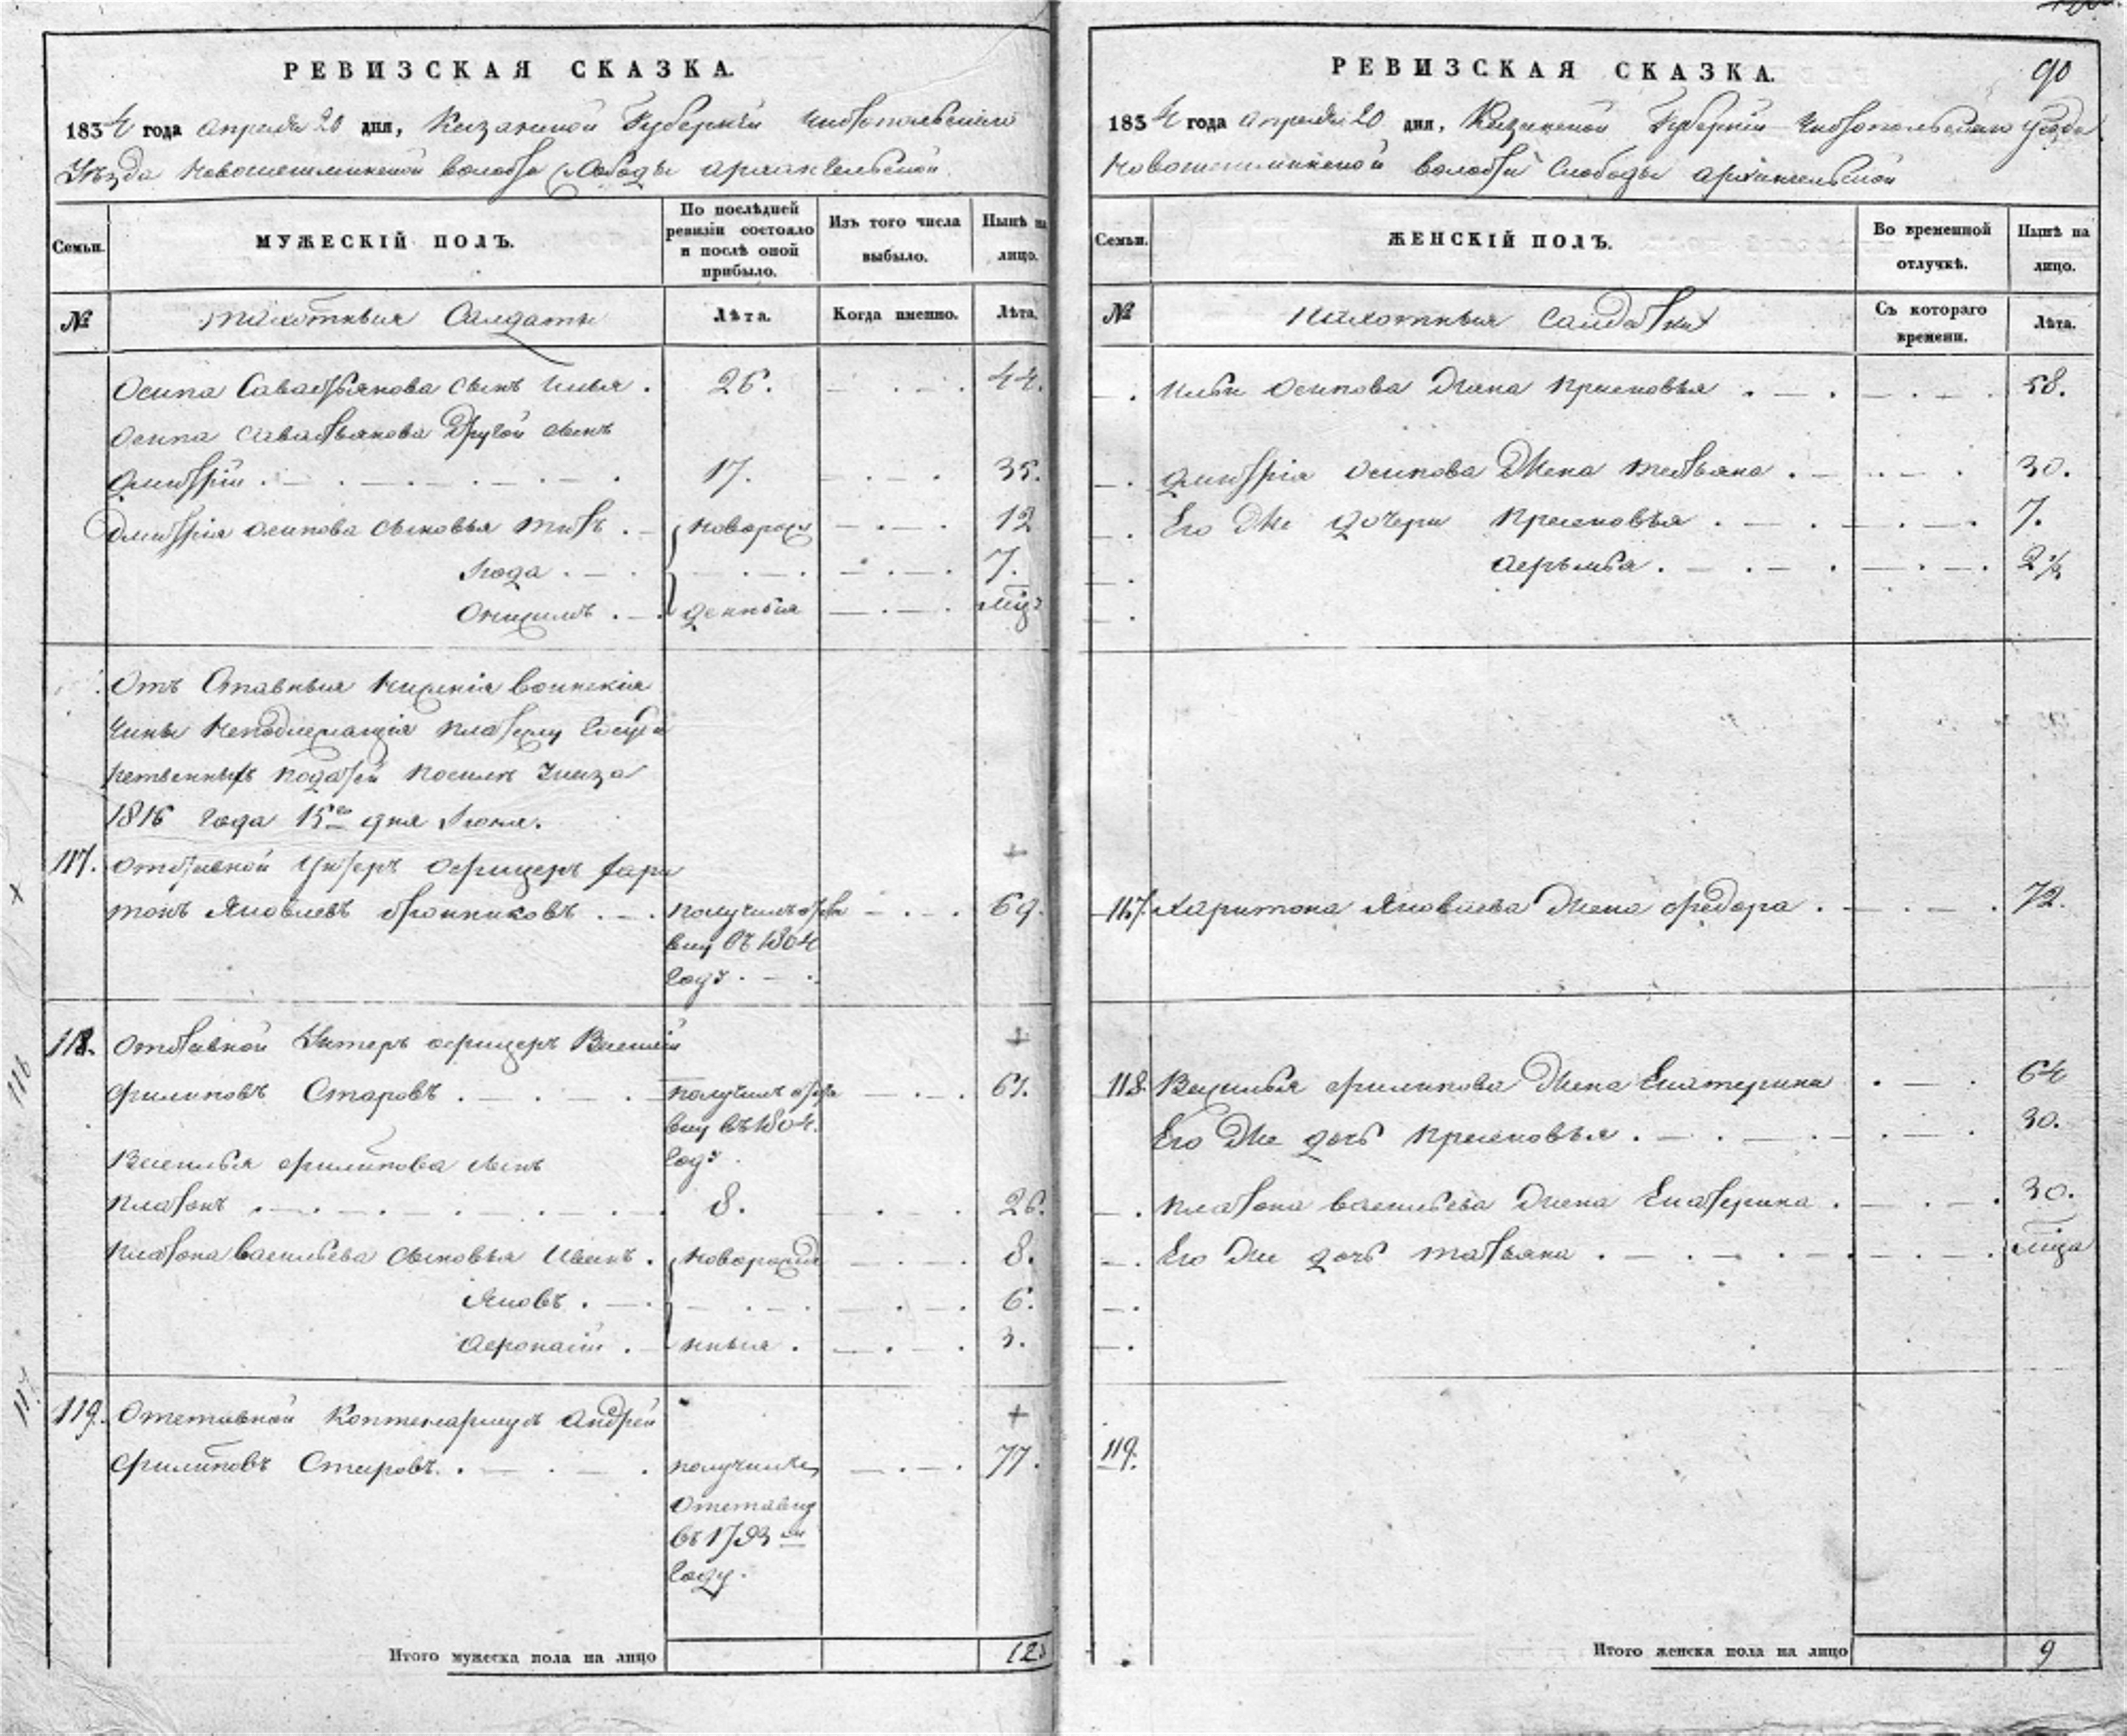 РЕВИЗСКАЯ СКАЗКА.
1834 года апреля 20 дня, Казанской Губернiи Чистопольскаго
Уѣзда Новошешминской волости Слободы Архангельской
Семьи.
МУЖЕСКIЙ ПОЛЪ.
По послѣдней ревизiи состояло и послѣ оной прибыло.
Изъ того числа выбыло.
Нынѣ на лицо.
№
Пахотныя Салдаты
Лѣта.
Когда именно.
Лѣта.
Осипа Савастьянова сынъ Илья . 26. 44.
Осипа Савастьянова Другой сынъ
Дмитрiй . 17. 35.
Дмитрiя Осипова сыновья Титъ . новорож 12
7.
Онисимъ . денныя
Отъ Ставныя Нижнiя воинскiя
Чины Неподлежащiя платежу Госуда
рственныхъ податей посилѣ Указа
1816 года 15го дня Iюня.
117. Отставной Унтеръ Офицеръ Хари
+
тонъ Яковлевъ . получилъ отста 69.
вку въ 1804
году .
118. Отставной Унтеръ офицеръ Василiй
+
Филиповъ Старовъ . получилъ отста 61.
вку въ 1804.
Василья Филипова сынъ году .
Платонъ . 8. 26.
Платона Васильева сыновья Иванъ . новорожде 8.
Яковъ . 6.
Аѳонасiй . нныя . 3.
119. Отставной Коптенармусъ Андрей
+
Филиповъ Старовъ . получилъ 77.
Отставку
въ 1793 мъ
Году.
Итого мужеска пола на лицо 12
116
117
90
РЕВИЗСКАЯ СКАЗКА.
1834 года апреля 20 дня, Казанской Губернiи Чистопольскаго уѣзда
Новошешминской волости Слободы Архангельской
Семьи.
ЖЕНСКIЙ ПОЛЪ.
Во временной отлучкѣ.
Нынѣ на лицо.
№
Пахотныя Салдатки
Съ котораго времени.
Лѣта.
Ильи Осипова Жена Прасковья . 58.
Дмитрiя Осипова Жена Татьяна . 30.
Его Же дочери Прасковья . 7.
2 ½
117. Харитона Яковлева Жена Федора . 72.
118. Василья Филипова Жена Екатерина 64
Его Же дочь Прасковья . 30.
Платона Васильева Жена Екатерина . 30.
Его Же дочь Татьяна .
119.
Итого женска пола на лицо 9